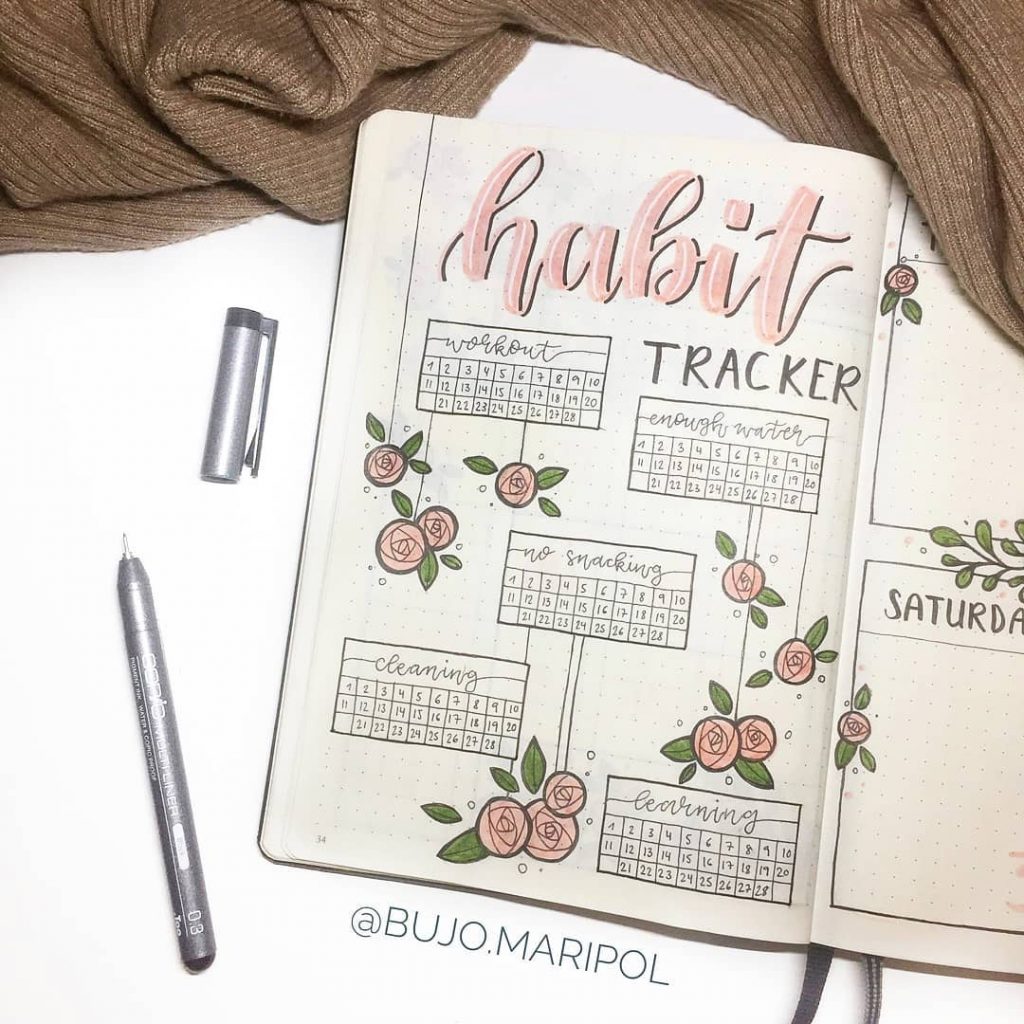 habit
TRACKER
workout
1 2 3 4 5 6 7 8 9 10
11 12 13 14 15 16 17 18 19 20
21 22 23 24 25 26 27 28
enough water
1 2 3 4 5 6 7 8 9 10
11 12 13 14 15 16 17 18 19 20
21 22 23 24 25 26 27 28
no snacking
1 2 3 4 5 6 7 8 9 10
11 12 13 14 15 16 17 18 19 20
21 22 23 24 25 26 27 28
cleaning
1 2 3 4 5 6 7 8 9 10
11 12 13 14 15 16 17 18 19 20
21 22 23 24 25 26 27 28
learning
1 2 3 4 5 6 7 8 9 10
11 12 13 14 15 16 17 18 19 20
21 22 23 24 25 26 27 28
34
SATURDA
COPIC MULTILINER
PIGMENT INK WATER & COPIC PROOF
0.3
@BUJO.MARIPOL